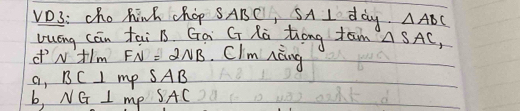 VD3: cho hình chóp SABC, SA ⊥ đáy. ΔABC
vuông cân tại B Gọi G là trọng tâm ΔSAC,
đ' N t/m FN = 2NB. C/m rằng
a, BC ⊥ mp SAB
b, NG ⊥ mp SAC